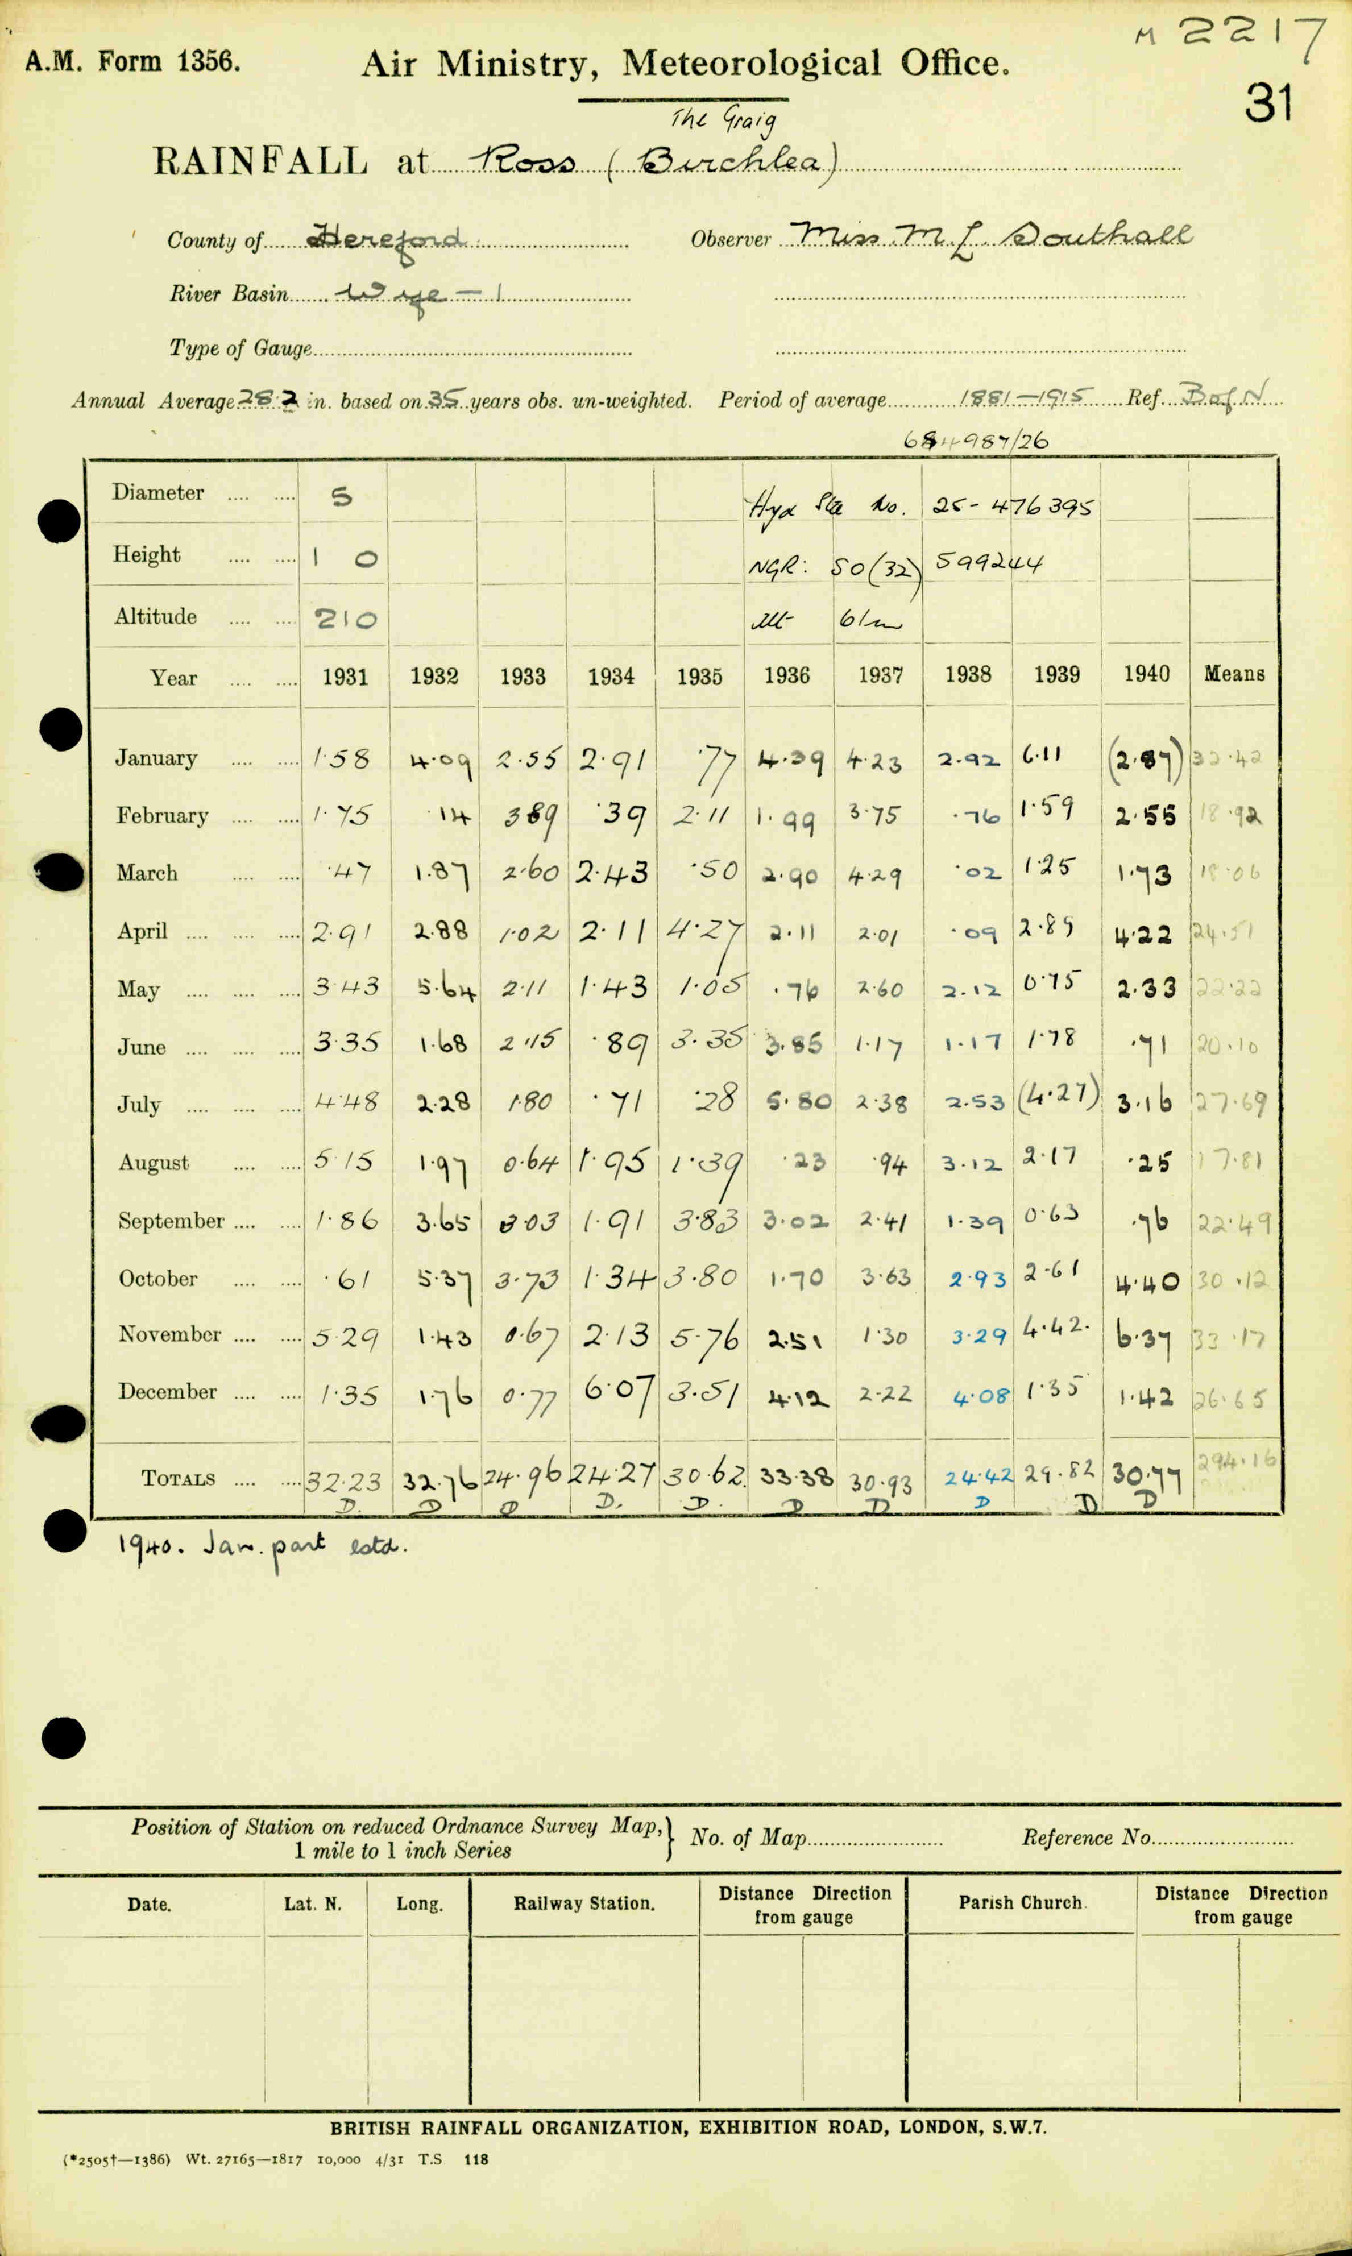 M 2217
A.M. Form 1356. Air Ministry, Meteorological Office.
31
The Graig
RAINFALL at Ross (Birchlea)
County of Hereford Observer Miss M L Southall
River Basin Wye – 1
Type of Gauge
Annual Average 28.2 in. based on 35 years obs. un-weighted. Period of average 1881–1915 Ref. B of N
Diameter 5 Hyd Sta No. 25- 476395
Height 1 0 NGR: SO (32) 599244
Altitude 210 Alt 61m
Year 1931 1932 1933 1934 1935 1936 1937 1938 1939 1940 Means
January 1.58 4.09 2.55 2.91 .77 4.39 4.23 2.92 6.11 (2.87) 32.42
February 1.75 .14 3.89 .39 2.11 1.99 3.75 .76 1.59 2.55 18.92
March .47 1.87 2.60 2.43 .50 2.90 4.29 .02 1.25 1.73 18.06
April 2.91 2.88 1.02 2.11 4.27 2.11 2.01 .09 2.89 4.22 24.51
May 3.43 5.64 2.11 1.43 1.05 .76 2.60 2.12 0.75 2.33 22.22
June 3.35 1.68 2.15 .89 3.35 3.85 1.17 1.17 1.78 .71 20.10
July 4.48 2.28 1.80 .71 .28 5.80 2.38 2.53 (4.27) 3.16 27.69
August 5.15 1.97 0.64 1.95 1.39 .23 .94 3.12 2.17 .25 17.81
September 1.86 3.65 3.03 1.91 3.83 3.02 2.41 1.39 0.63 .76 22.49
October .61 5.37 3.73 1.34 3.80 1.70 3.63 2.93 2.61 4.40 30.12
November 5.29 1.43 0.67 2.13 5.76 2.51 1.30 3.29 4.42. 6.37 33.17
December 1.35 1.76 0.77 6.07 3.51 4.12 2.22 4.08 1.35 1.42 26.65
TOTALS 32.23 32.76 24.96 24.27 30.62 33.38 30.93 24.42 29.82 30.77 294.16
D. D D D. D. D D D D D
1940. Jan. part estd.
Position of Station on reduced Ordnance Survey Map,} No. of Map Reference No.
1 mile to 1 inch Series
Date. Lat. N. Long. Railway Station. Distance Direction from gauge Parish Church. Distance Direction from gauge
BRITISH RAINFALL ORGANIZATION, EXHIBITION ROAD, LONDON, S.W.7.
(*2505†—1386) Wt. 27165—1817 10,000 4/31 T.S 118